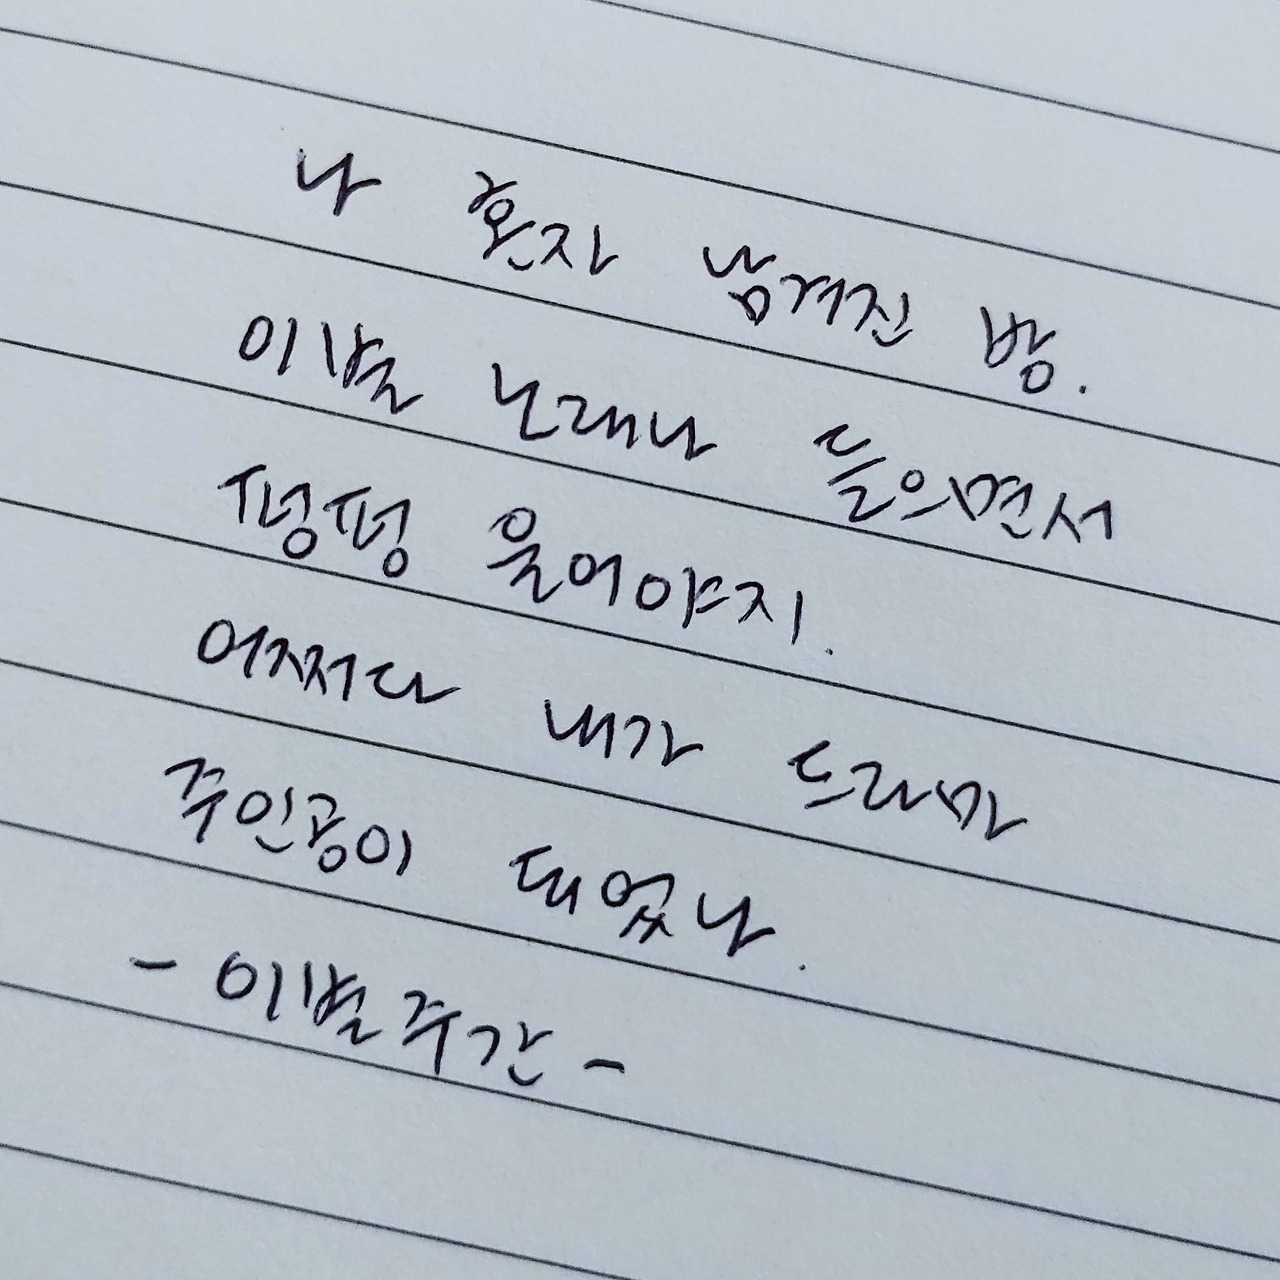 나 혼자 남겨진 방.
이별 노래나 들으면서
펑펑 울어야지.
어쩌다 내가 드라마
주인공이 되었나.
- 이별주간 -